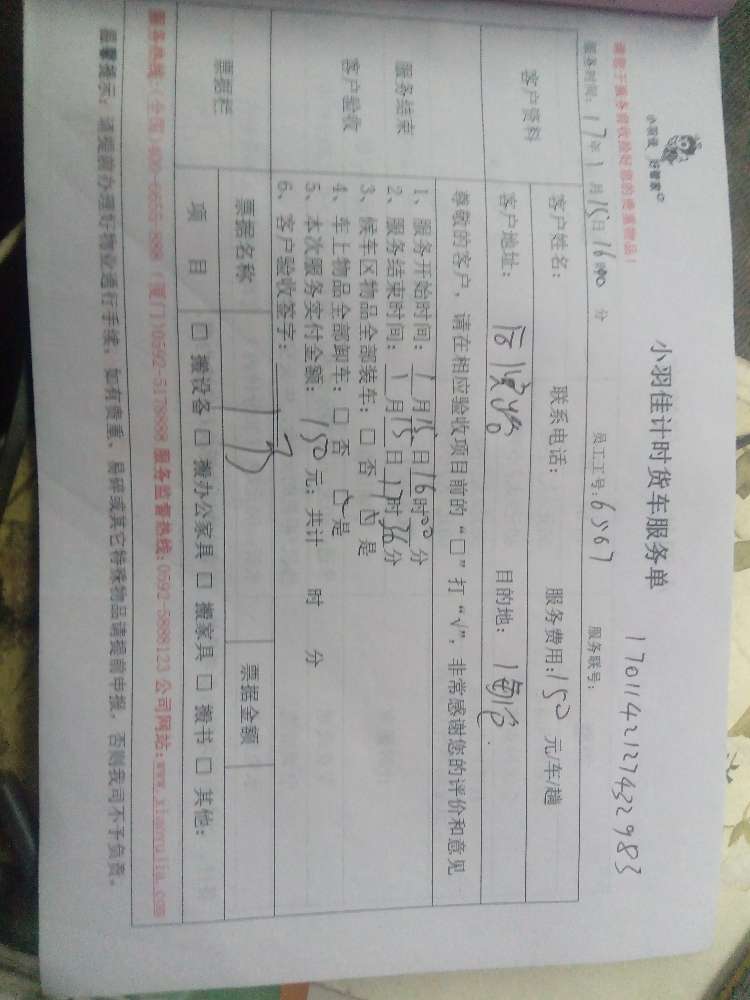 小羽佳 好管家
小羽佳计时货车服务单
170114212743 2983
请您于服务前收捡好您的贵重物品！
服务时间：17年1月15日16时00分 员工工号：6567 服务联号：
客户资料
客户姓名： 联系电话： 服务费用：150元/车/趟
客户地址： 目的地：
服务结束
客户验收
尊敬的客户，请在相应验收项目前的“□”打“√”，非常感谢您的评价和意见
1、服务开始时间：1月15日16时00分
2、服务结束时间：1月15日17时36分
3、候车区物品全部装车：□ 否 ☑ 是
4、车上物品全部卸车：□ 否 ☑ 是
5、本次服务实付金额：150元；共计 时 分
6、客户验收签字：
票据栏
票据名称 票据金额
项 目 □ 搬设备 □ 搬办公家具 □ 搬家具 □ 搬书 □ 其他：
服务热线：（全国）400-6655-888（厦门）0592-5178998 服务监督热线：0592-5888123 公司网站：www.xiaoyujia.com
温馨提示：请提前办理好物业通行手续，如有贵重、易碎或其它特殊物品请提前申报，否则我司不予负责。